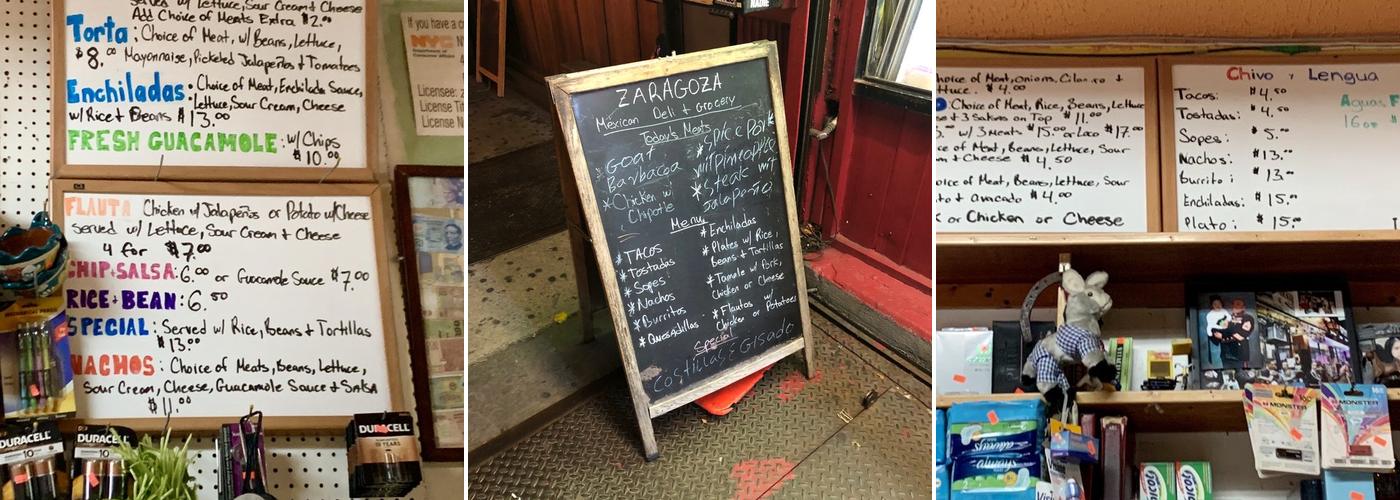 served w/ Lettuce, Sour Cream & Cheese
Add Choice of Meats Extra $2.00
Torta: Choice of Meat, w/ Beans, Lettuce,
$8.00 Mayonnaise, Pickeled Jalapeños & Tomatoes
Enchiladas: Choice of Meat, Enchilada Sauce,
Lettuce, Sour Cream, Cheese
w/ Rice & Beans $13.00
FRESH GUACAMOLE: w/ Chips
$10.00
FLAUTA Chicken w/ Jalapeños or Potato w/ Cheese
served w/ Lettuce, Sour Cream & Cheese
4 for $7.00
CHIP & SALSA: 6.00 or Guacamole Sauce $7.00
RICE & BEAN: 6.50
SPECIAL: Served w/ Rice, Beans & Tortillas
$13.00
NACHOS: Choice of Meats, beans, lettuce,
Sour Cream, Cheese, Guacamole Sauce & Salsa
$11.00
If you have a
NYC
Department of
Consumer Affairs
Licensee:
License
License N
DURACELL
DURACELL
DURACELL
ZARAGOZA
Mexican Deli & Grocery
Today's Meats
*Goat
Barbacoa
*Chicken w/
Chipotle
*Spice Pork
wit pineapple
*Steak wit
Jalapeño
Menu
*TACOS
*Tostadas
*Sopes
*Nachos
*Burritos
*Quesadillas
*Enchiladas
*Plates w/ Rice,
Beans & Tortillas
*Tamale w/ Pork,
Chicken or Cheese
*Flautas w/
Chicken or Potatoes
Special
Costillas E Gisado
hoice of Meat, Onions, Cilantro &
ttuce. $4.00
Choice of Meat, Rice, Beans, Lettuce
se & 3 Salsas on Top $11.00
w/ 3 Meats $15.00 or Loco $17.00
ce of Meat, Beans, Lettuce, Sour
m & Cheese $4.50
oice of Meat, Beans, Lettuce, Sour
to & avocado $4.00
or Chicken or Cheese
Chivo y Lengua
Tacos: $4.50
Tostadas: $4.50
Sopes: $5.00
Nachos: $13.00
burrito: $13.00
Enchiladas: $15.00
Plato: $15.00
Aguas F
16oz $
MONSTER
MONSTER
always